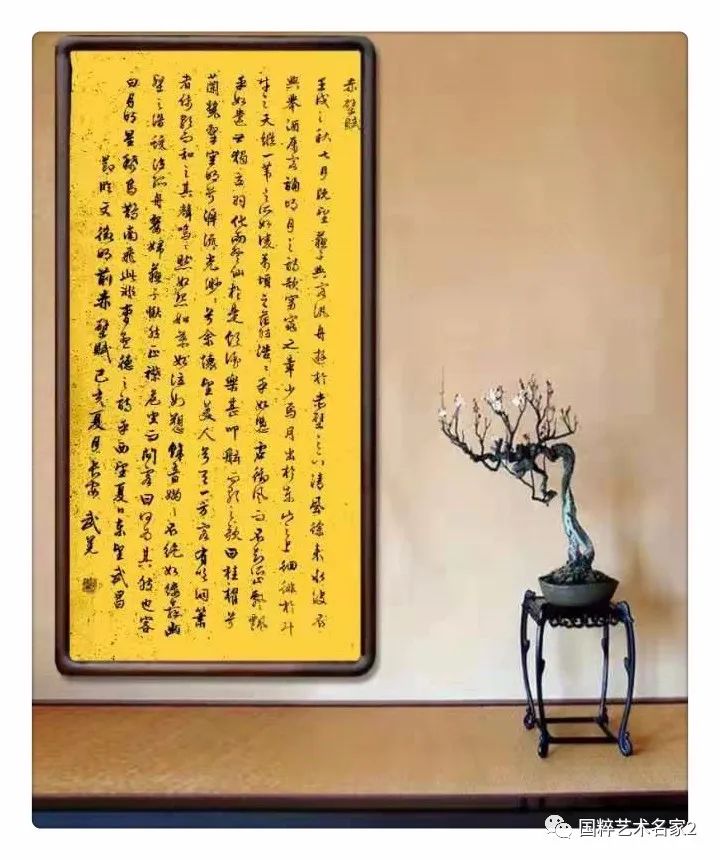 赤壁賦
壬戌之秋七月既望蘇子與客泛舟遊於赤壁之下清風徐來水波不
興舉酒屬客誦明月之詩歌窈窕之章少焉月出於東山之上徘徊於斗
牛之天縱一葦之所如凌萬頃之茫然浩浩乎如憑虛御風而不知所止飄飄
乎如遺世獨立羽化而登仙於是飲酒樂甚叩舷而歌之歌曰桂櫂兮
蘭槳擊空明兮溯流光渺渺兮余懷望美人兮天一方客有吹洞簫
者倚歌而和之其聲嗚嗚然如怨如慕如泣如訴餘音嫋嫋不絕如縷舞幽
壑之潛蛟泣孤舟嫠婦蘇子愀然正襟危坐而問客曰何為其然也客
曰月明星稀烏鵲南飛此非曹孟德之詩乎西望夏口東望武昌
節臨文徵明前赤壁賦己亥夏月長安武
国粹艺术名家2